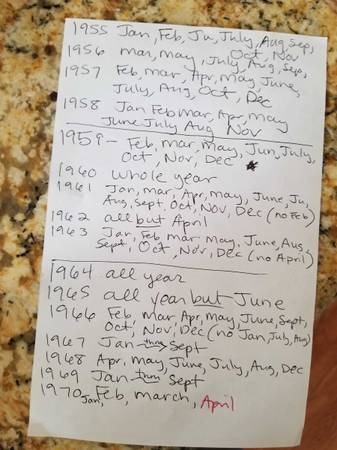 1955 Jan, Feb, Ju, July, Aug, Sep,
Oct, Nov
1956 mar, may, July, Aug, Sep,
1957 Feb, mar, Apr, may, June,
July, Aug, Oct, Dec
1958 Jan Feb mar, Apr, may
June July Aug Nov
1959 - Feb, mar, may, Jun, July,
Oct, Nov, Dec
1960 whole year
1961 Jan, mar, Apr, may, June, Ju,
Aug, Sept, Oct, Nov, Dec (no Feb)
1962 all but April
1963 Jan, Feb, mar may, June, Aug,
Sept, Oct, Nov, Dec (no April)
1964 all year
1965 all year but June
1966 Feb, mar Apr, may, June, Sept,
Oct, Nov, Dec (no Jan, July, Aug)
1967 Jan thru Sept
1968 Apr, may, June, July, Aug, Dec
1969 Jan thru Sept
1970 Jan, Feb, march, April